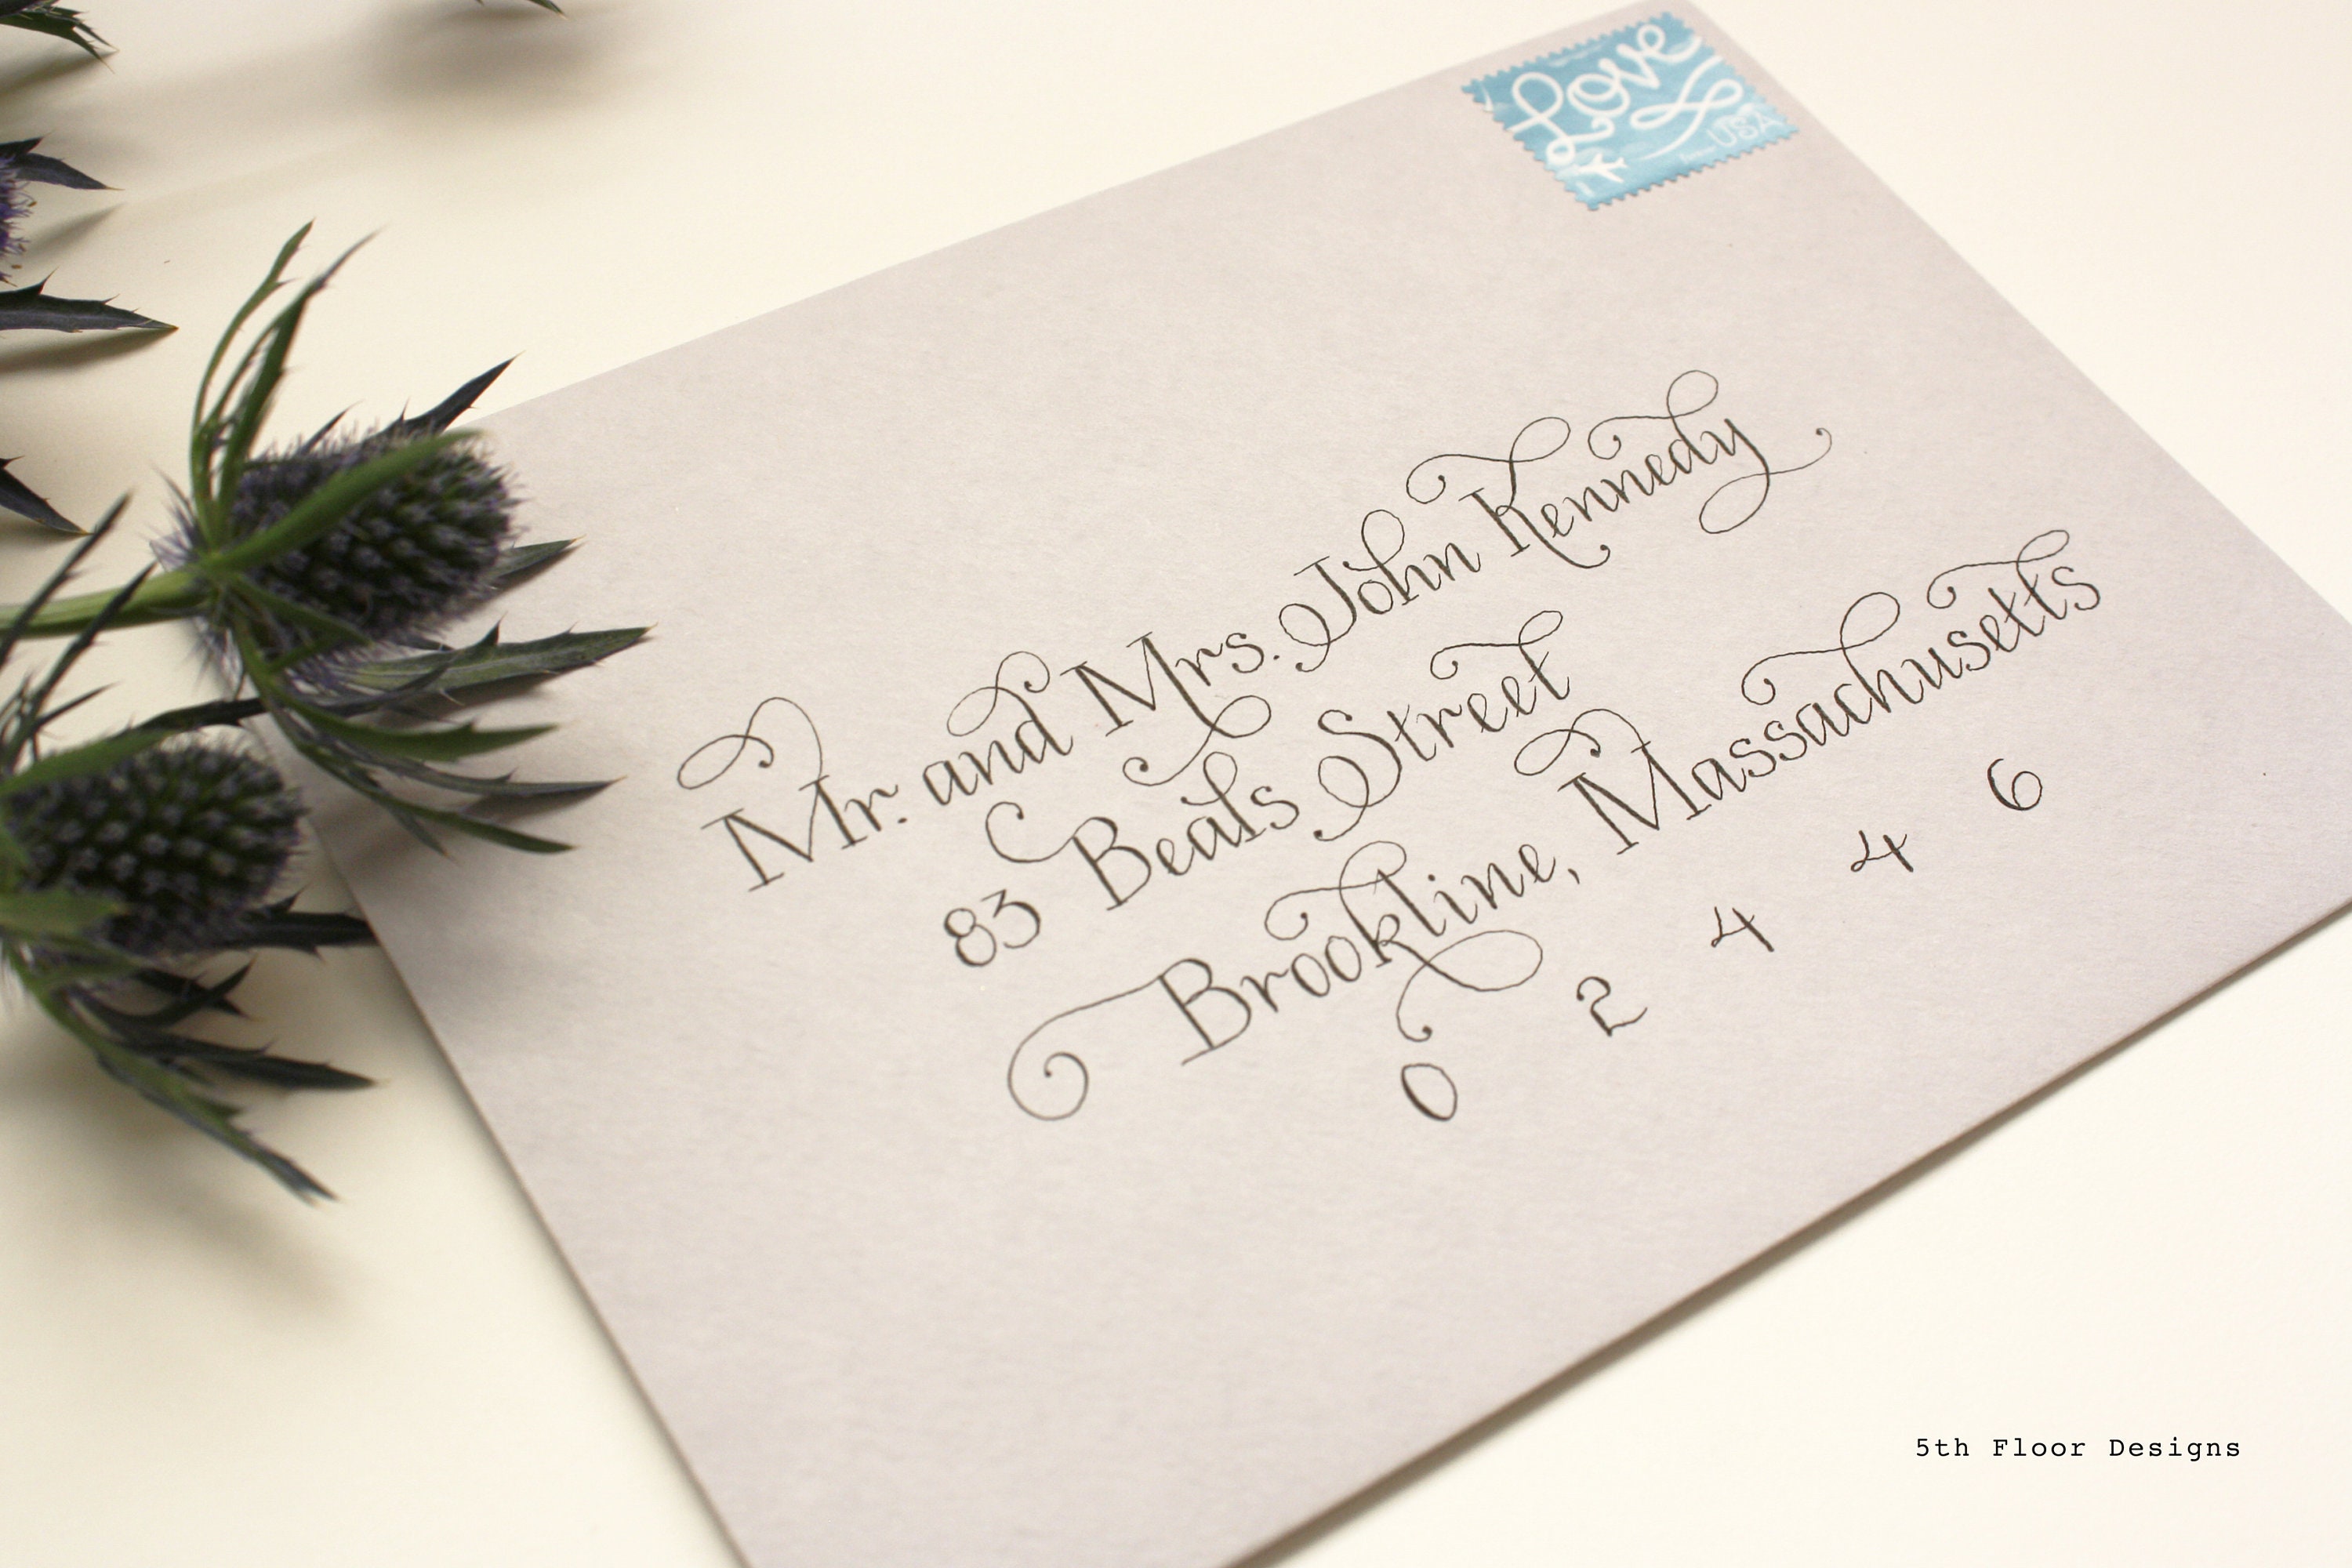 Love
USA
Mr. and Mrs. John Kennedy
83 Beals Street
Brookline, Massachusetts
0 2 4 4 6
5th Floor Designs